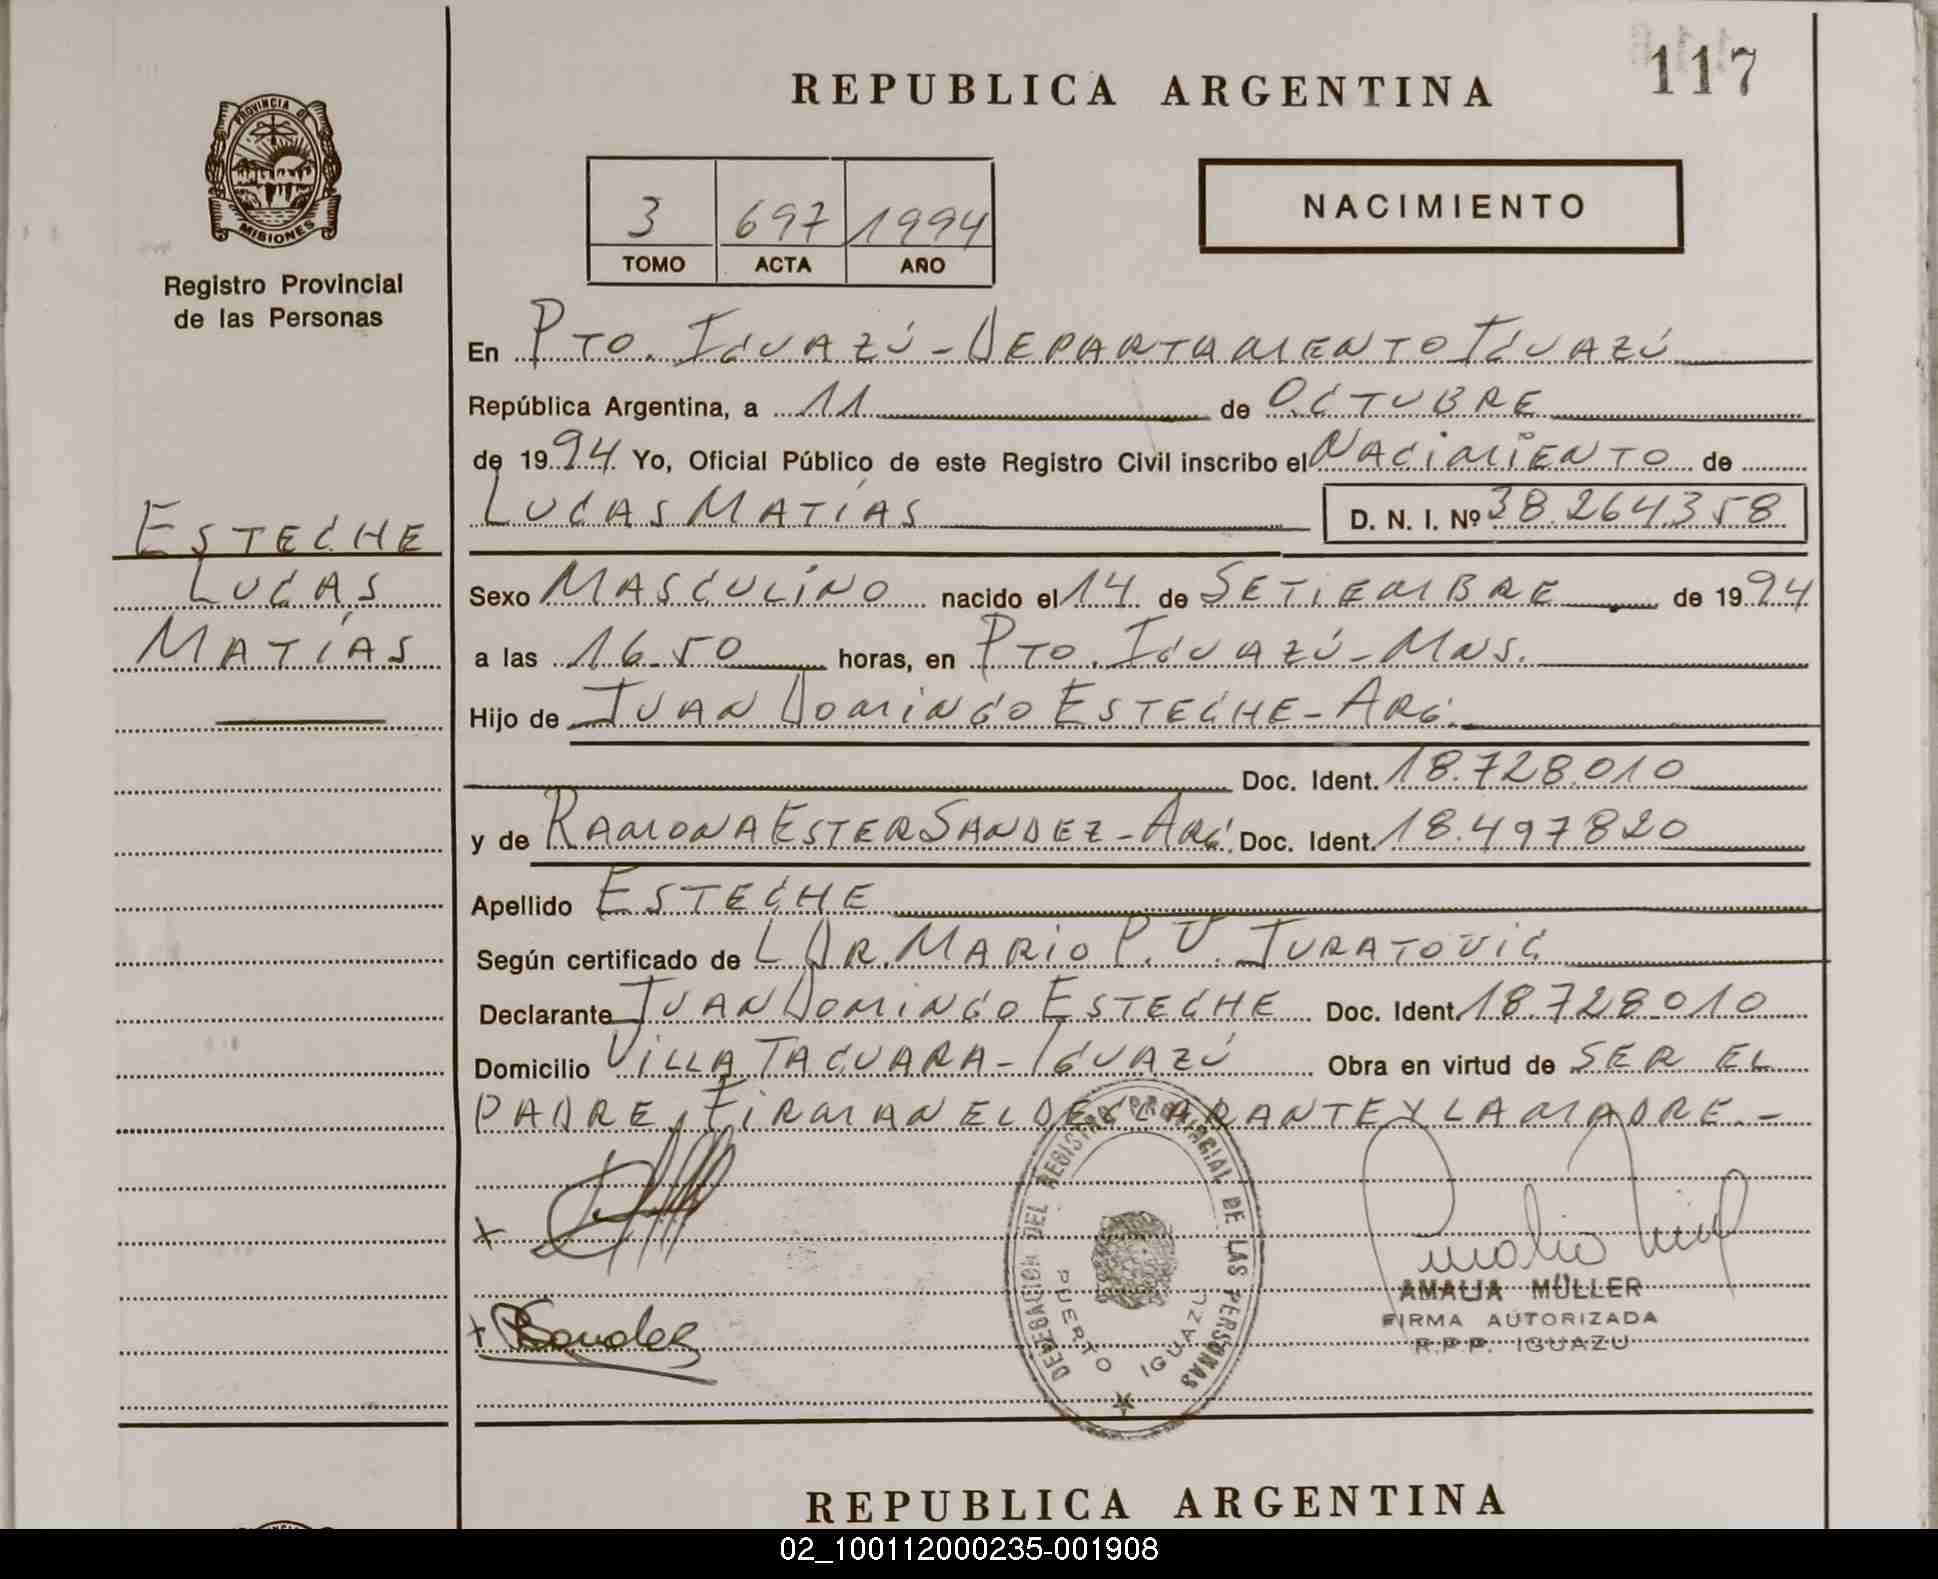 117
REPUBLICA ARGENTINA
PROVINCIA DE MISIONES
Registro Provincial
de las Personas
3 697 1994
TOMO ACTA AÑO
NACIMIENTO
En PTO. IGUAZÚ - DEPARTAMENTO IGUAZÚ
República Argentina, a 11 de OCTUBRE
de 1994 Yo, Oficial Público de este Registro Civil inscribo el NACIMIENTO de
LUCAS MATÍAS D. N. I. Nº 38.264.358
ESTECHE
LUCAS
MATÍAS
Sexo MASCULINO nacido el 14 de SETIEMBRE de 1994
a las 16.50 horas, en PTO. IGUAZÚ - MNS.
Hijo de JUAN DOMINGO ESTECHE - ARG.
Doc. Ident. 18.728.010
y de RAMONA ESTER SANDEZ - ARG. Doc. Ident. 18.497820
Apellido ESTECHE
Según certificado de L DR. MARIO P. V. JURATOVIC
Declarante JUAN DOMINGO ESTECHE Doc. Ident. 18.728.010
Domicilio VILLA TACUARA - IGUAZÚ Obra en virtud de SER EL
PADRE, FIRMAN EL DECLARANTE Y LA MADRE. -
DELEGACION DEL REGISTRO PROVINCIAL DE LAS PERSONAS
PUERTO IGUAZU
Sandez
AMALIA MÜLLER
FIRMA AUTORIZADA
R.P.P. IGUAZU
REPUBLICA ARGENTINA
02_100112000235-001908